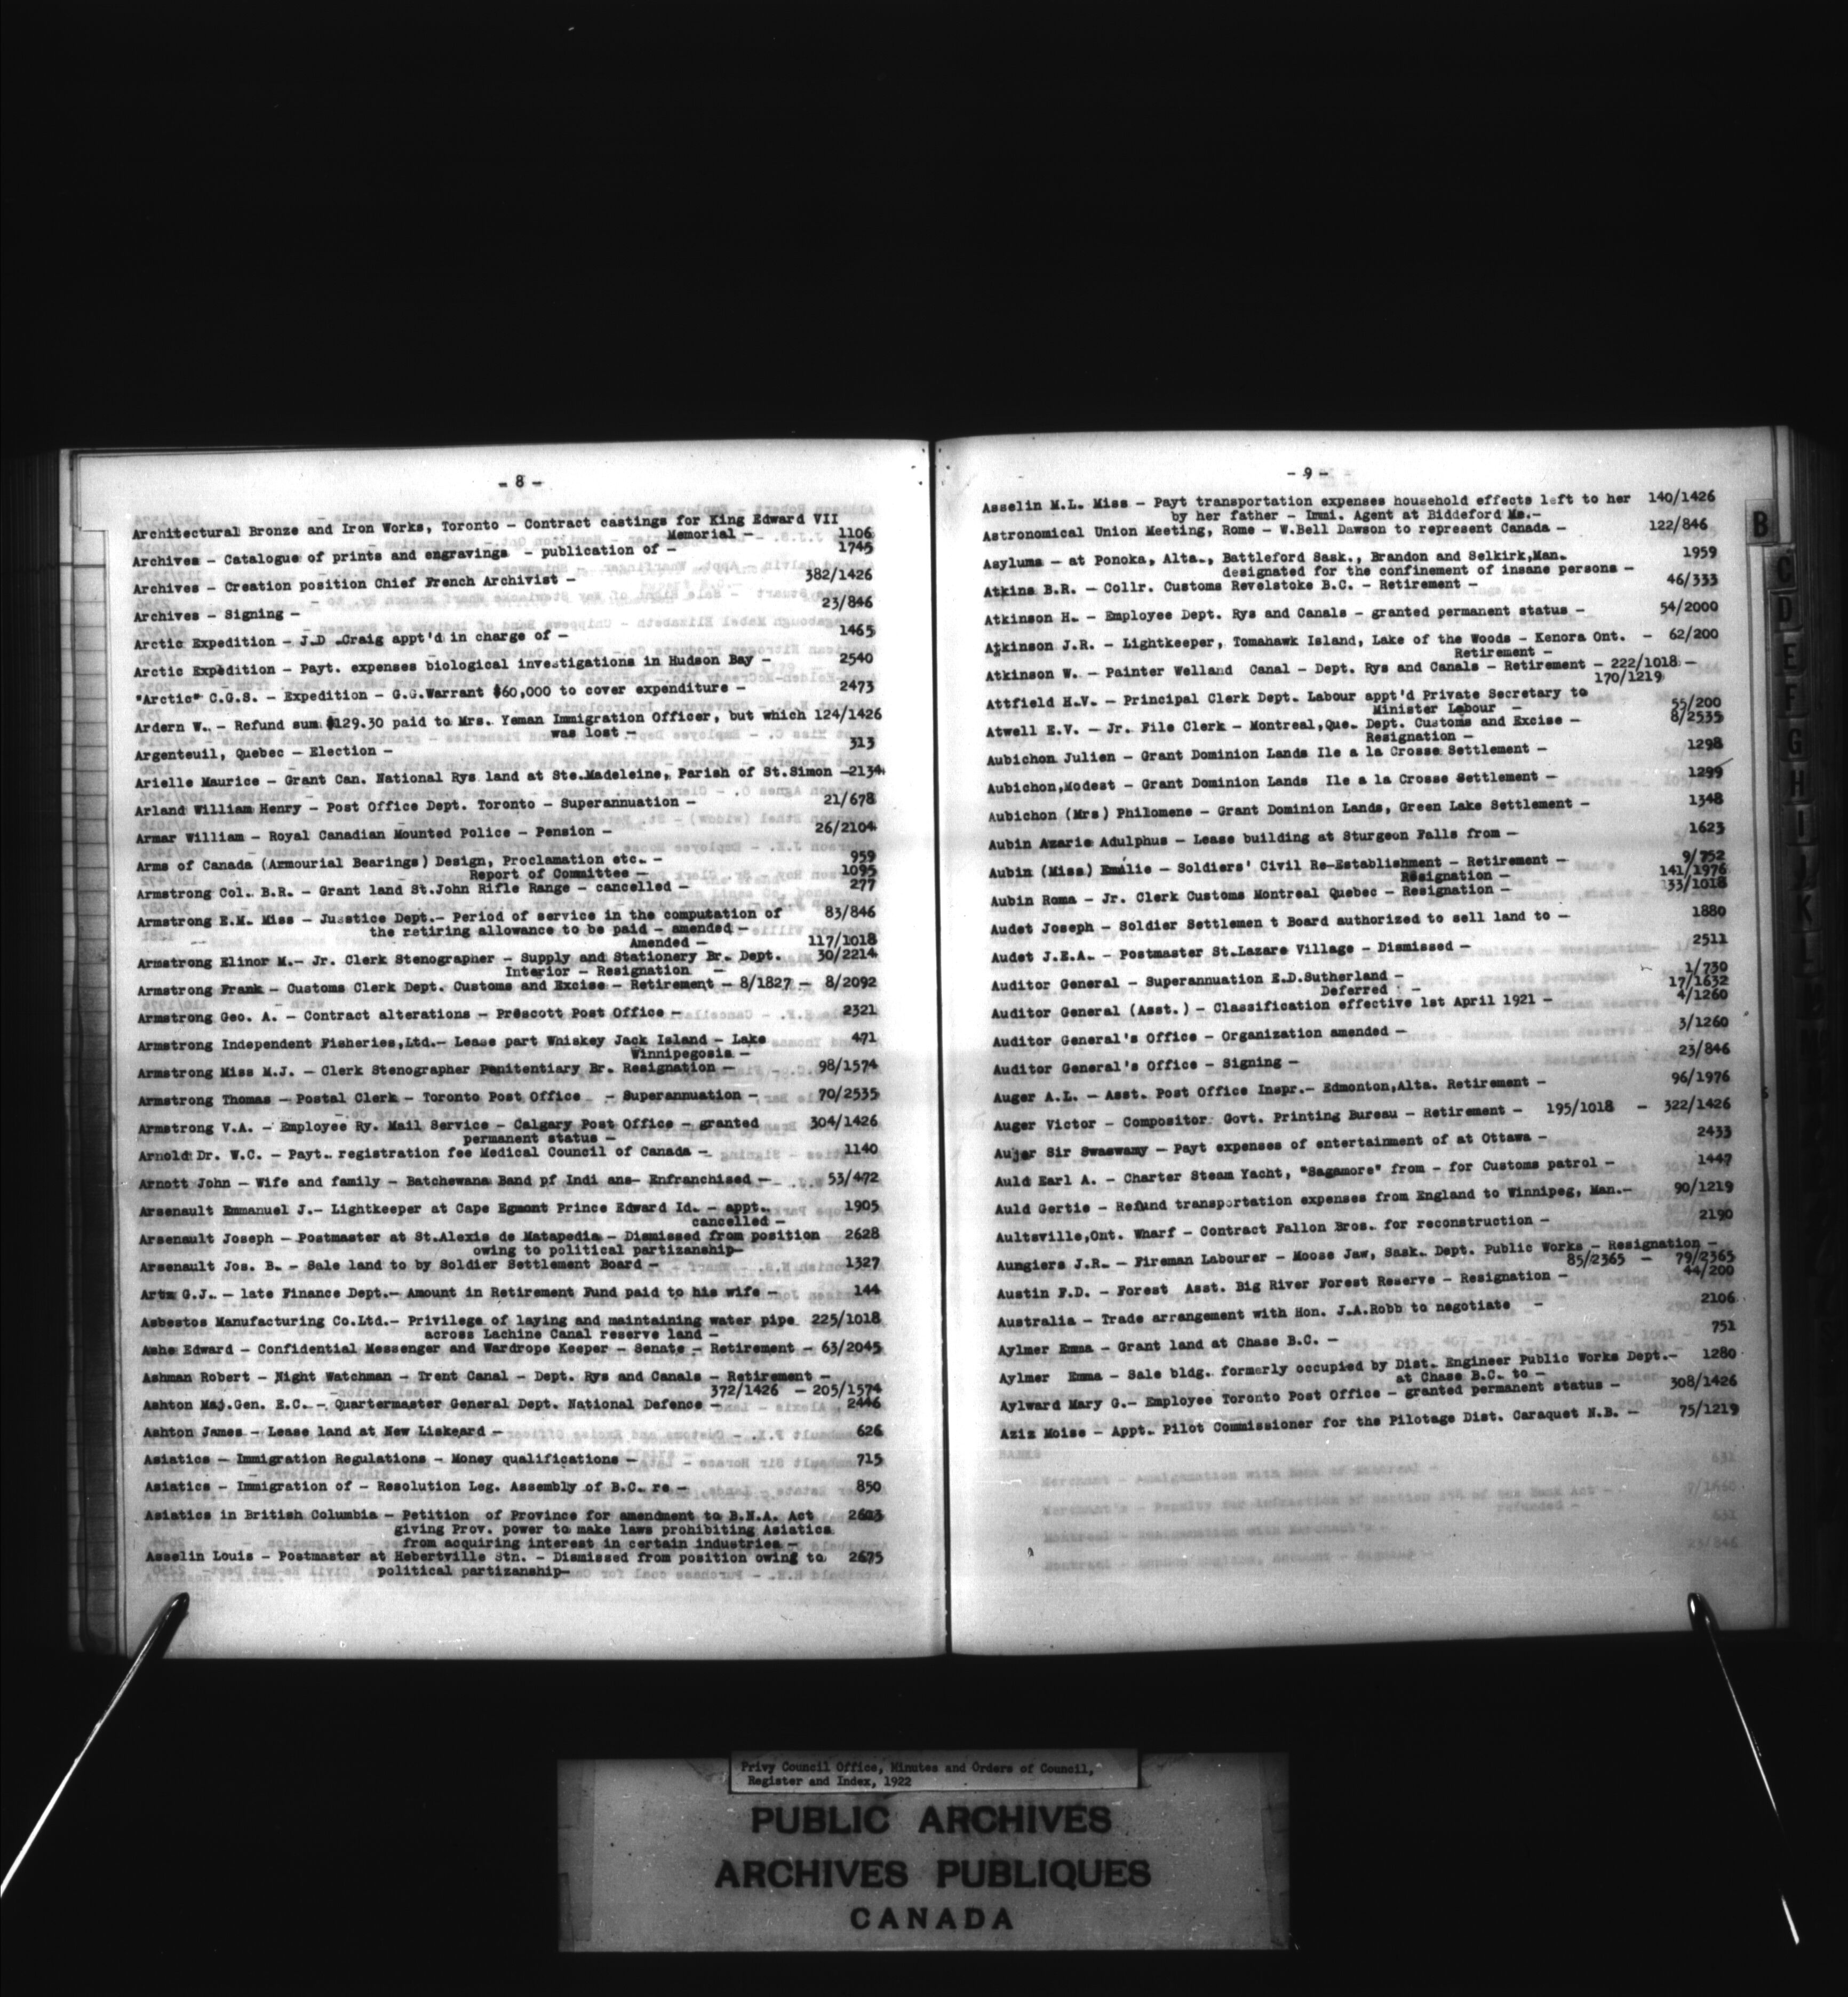 - 8 -
Architectural Bronze and Iron Works, Toronto - Contract castings for King Edward VII
Memorial - 1106
Archives - Catalogue of prints and engravings - publication of - 1745
Archives - Creation position Chief French Archivist - 382/1426
Archives - Signing - 23/846
Arctic Expedition - J.D .Craig appt'd in charge of - 1465
Arctic Expedition - Payt. expenses biological investigations in Hudson Bay - 2540
"Arctic" C.G.S. - Expedition - G.G.Warrant $60,000 to cover expenditure - 2473
Ardern W. - Refund sum $129.30 paid to Mrs. Yeman Immigration Officer, but which 124/1426
was lost -
Argenteuil, Quebec - Election - 313
Arielle Maurice - Grant Can. National Rys land at Ste.Madeleine, Parish of St.Simon -2134
Arland William Henry - Post Office Dept. Toronto - Superannuation - 21/678
Armar William - Royal Canadian Mounted Police - Pension - 26/2104
Arms of Canada (Armourial Bearings) Design, Proclamation etc. - 959
Report of Committee - 1095
Armstrong Col. B.R. - Grant land St.John Rifle Range - cancelled - 277
Armstrong E.M. Miss - Jusstice Dept.- Period of service in the computation of 83/846
the retiring allowance to be paid - amended -
Amended - 117/1018
Armstrong Elinor M.- Jr. Clerk Stenographer - Supply and Stationery Br. Dept. 30/2214
Interior - Resignation -
Armstrong Frank - Customs Clerk Dept. Customs and Excise - Retirement - 8/1827 - 8/2092
Armstrong Geo. A. - Contract alterations - Prescott Post Office - 2321
Armstrong Independent Fisheries,Ltd.- Lease part Whiskey Jack Island - Lake 471
Winnipegosis -
Armstrong Miss M.J. - Clerk Stenographer Penitentiary Br. Resignation - 98/1574
Armstrong Thomas - Postal Clerk - Toronto Post Office - Superannuation - 70/2535
Armstrong V.A. - Employee Ry. Mail Service - Calgary Post Office - granted 304/1426
permanent status -
Arnold Dr. W.C. - Payt. registration fee Medical Council of Canada - 1140
Arnott John - Wife and family - Batchewana Band pf Indi ans- Enfranchised - 53/472
Arsenault Emmanuel J.- Lightkeeper at Cape Egmont Prince Edward Id. - appt. 1905
cancelled -
Arsenault Joseph - Postmaster at St.Alexis de Matapedia - Dismissed from position 2628
owing to political partizanship-
Arsenault Jos. B. - Sale land to by Soldier Settlement Board - 1327
G.J. - late Finance Dept.- Amount in Retirement Fund paid to his wife - 144
Asbestos Manufacturing Co.Ltd.- Privilege of laying and maintaining water pipe 225/1018
across Lachine Canal reserve land -
Ashe Edward - Confidential Messenger and Wardrope Keeper - Senate - Retirement - 63/2045
Ashman Robert - Night Watchman - Trent Canal - Dept. Rys and Canals - Retirement -
372/1426 - 205/1574
Ashton Maj.Gen. E.C. - Quartermaster General Dept. National Defence - 2446
Ashton James - Lease land at New Liskeard - 626
Asiatics - Immigration Regulations - Money qualifications - 715
Asiatics - Immigration of - Resolution Leg. Assembly of B.C. re - 850
Asiatics in British Columbia - Petition of Province for amendment to B.N.A. Act
giving Prov. power to make laws prohibiting Asiatics
from acquiring interest in certain industries -
Asselin Louis - Postmaster at Hebertville Stn. - Dismissed from position owing to 2675
political partizanship-
- 9 -
Asselin M.L. Miss - Payt transportation expenses household effects left to her 140/1426
by her father - Immi. Agent at Biddeford Me.-
Astronomical Union Meeting, Rome - W.Bell Dawson to represent Canada - 122/846
Asylums - at Ponoka, Alta., Battleford Sask., Brandon and Selkirk,Man. 1959
designated for the confinement of insane persons -
Atkins B.R. - Collr. Customs Revelstoke B.C. - Retirement - 46/333
Atkinson H. - Employee Dept. Rys and Canals - granted permanent status - 54/2000
Atkinson J.R. - Lightkeeper, Tomahawk Island, Lake of the Woods - Kenora Ont. - 62/200
Retirement -
Atkinson W. - Painter Welland Canal - Dept. Rys and Canals - Retirement - 222/1018 -
170/1219
Attfield H.V. - Principal Clerk Dept. Labour appt'd Private Secretary to
Minister Labour - 55/200
Atwell E.V. - Jr. File Clerk - Montreal,Que. Dept. Customs and Excise - 8/2535
Resignation -
Aubichon Julien - Grant Dominion Lands Ile a la Crosse Settlement - 1298
Aubichon,Modest - Grant Dominion Lands Ile a la Crosse Settlement - 1299
Aubichon (Mrs) Philomene - Grant Dominion Lands, Green Lake Settlement - 1348
Aubin Azarie Adulphus - Lease building at Sturgeon Falls from - 1623
Aubin (Miss) Emélie - Soldiers' Civil Re-Establishment - Retirement - 9/752
Resignation - 141/1976
Aubin Roma - Jr. Clerk Customs Montreal Quebec - Resignation - 33/1018
Audet Joseph - Soldier Settlemen t Board authorized to sell land to - 1880
Audet J.E.A. - Postmaster St.Lazare Village - Dismissed - 2511
Auditor General - Superannuation E.D.Sutherland - 1/730
Deferred - 17/1632
Auditor General (Asst.) - Classification effective 1st April 1921 - 4/1260
Auditor General's Office - Organization amended - 3/1260
Auditor General's Office - Signing - 23/846
Auger A.L. - Asst. Post Office Inspr.- Edmonton,Alta. Retirement - 96/1976
Auger Victor - Compositor Govt. Printing Bureau - Retirement - 195/1018 - 322/1426
Aujar Sir Swaswamy - Payt expenses of entertainment of at Ottawa - 2433
Auld Earl A. - Charter Steam Yacht, "Sagamore" from - for Customs patrol - 1447
Auld Gertie - Refund transportation expenses from England to Winnipeg, Man.- 90/1219
Aultsville,Ont. Wharf - Contract Fallon Bros. for reconstruction - 2190
Aungiers J.R. - Fireman Labourer - Moose Jaw, Sask. Dept. Public Works - Resignation -
85/2365 - 79/2365
Austin F.D. - Forest Asst. Big River Forest Reserve - Resignation - 44/200
Australia - Trade arrangement with Hon. J.A.Robb to negotiate - 2106
Aylmer Emma - Grant land at Chase B.C. - 751
Aylmer Emma - Sale bldg. formerly occupied by Dist. Engineer Public Works Dept.- 1280
at Chase B.C. to -
Aylward Mary G.- Employee Toronto Post Office - granted permanent status - 308/1426
Aziz Moise - Appt. Pilot Commissioner for the Pilotage Dist. Caraquet N.B. - 75/1219
B
C
D
E
F
G
H
I
J
K
L
Privy Council Office, Minutes and Orders of Council,
Register and Index, 1922
PUBLIC ARCHIVES
ARCHIVES PUBLIQUES
CANADA